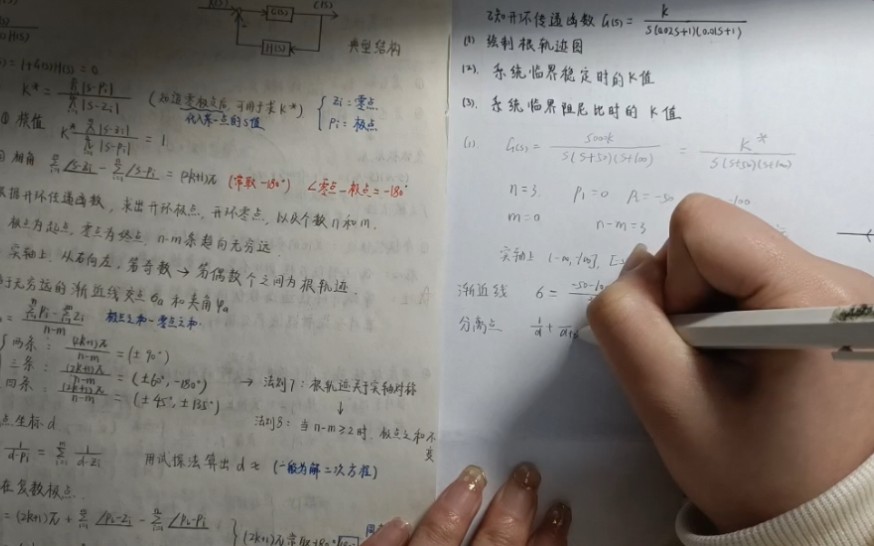 G(s)
C(s)
H(s)
典型结构
= 1+G(s)H(s) = 0
K* = 
|s-pi|
|s-zi|
(知道零极点后, 可用于求K*)
代入某一点的s值
zi: 零点
pi: 极点
幅值 K* |s-zi| / |s-pi| = 1
相角 ∠s-zi - ∠s-pi = (2k+1)π (常取-180°) ∠零点-极点=-180°
根据开环传递函数, 求出开环极点, 开环零点, 以及个数n和m.
极点为起点, 零点为终点, n-m条趋向无穷远.
实轴上, 从右向左, 若奇数→若偶数个之间为根轨迹.
无穷远的渐近线交点σa和夹角φa
= Σpi-Σzi / n-m 极点之和-零点之和.
两条: (2k+1)π / n-m = (±90°)
三条: (2k+1)π / n-m = (±60°, -180°)
四条: (2k+1)π / n-m = (±45°, ±135°)
→ 法则7: 根轨迹关于实轴对称
↓
法则8: 当n-m≥2时, 极点之和不变
点坐标d
1/d-pi = Σ 1/d-zi 用试探法算出d≈ (一般为解二次方程)
在复数极点
= (2k+1)π + Σ∠pi-zi - Σ∠pi-pj
已知开环传递函数 G(s) = K / s(0.02s+1)(0.01s+1)
(1) 绘制根轨迹图
(2). 系统临界稳定时的K值
(3). 系统临界阻尼比时的K值
(1). G(s) = 5000K / s(s+50)(s+100) = K* / s(s+50)(s+100)
n=3. P1=0 P2=-50 -100
m=0 n-m=3
实轴上 (-∞,-100], [-
渐近线 σ = -50-10
分离点 1/d +